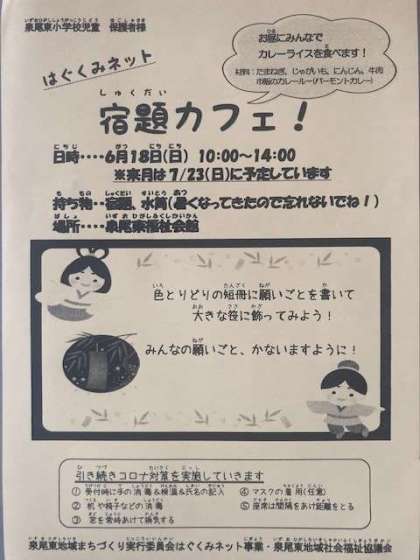 泉尾東小学校児童　保護者様
お昼にみんなで
カレーライスを食べます！
材料：たまねぎ、じゃがいも、にんじん、牛肉
市販のカレールー(バーモントカレー)
はぐくみネット
宿題カフェ！
日時・・・・6月18日(日)　10:00～14:00
※来月は7/23(日)に予定しています
持ち物・・宿題、水筒(暑くなってきたので忘れないでね！)
場所・・・・泉尾東福祉会館
色とりどりの短冊に願いごとを書いて
大きな笹に飾ってみよう！
みんなの願いごと、かないますように！
引き続きコロナ対策を実施していきます
① 受付時に手の消毒＆検温＆氏名の記入
② 机や椅子などの消毒
③ 窓を常時あけて換気する
④ マスクの着用(任意)
⑤ 座席は間隔をあけ距離をとる
泉尾東地域まちづくり実行委員会はぐくみネット事業・泉尾東地域社会福祉協議会